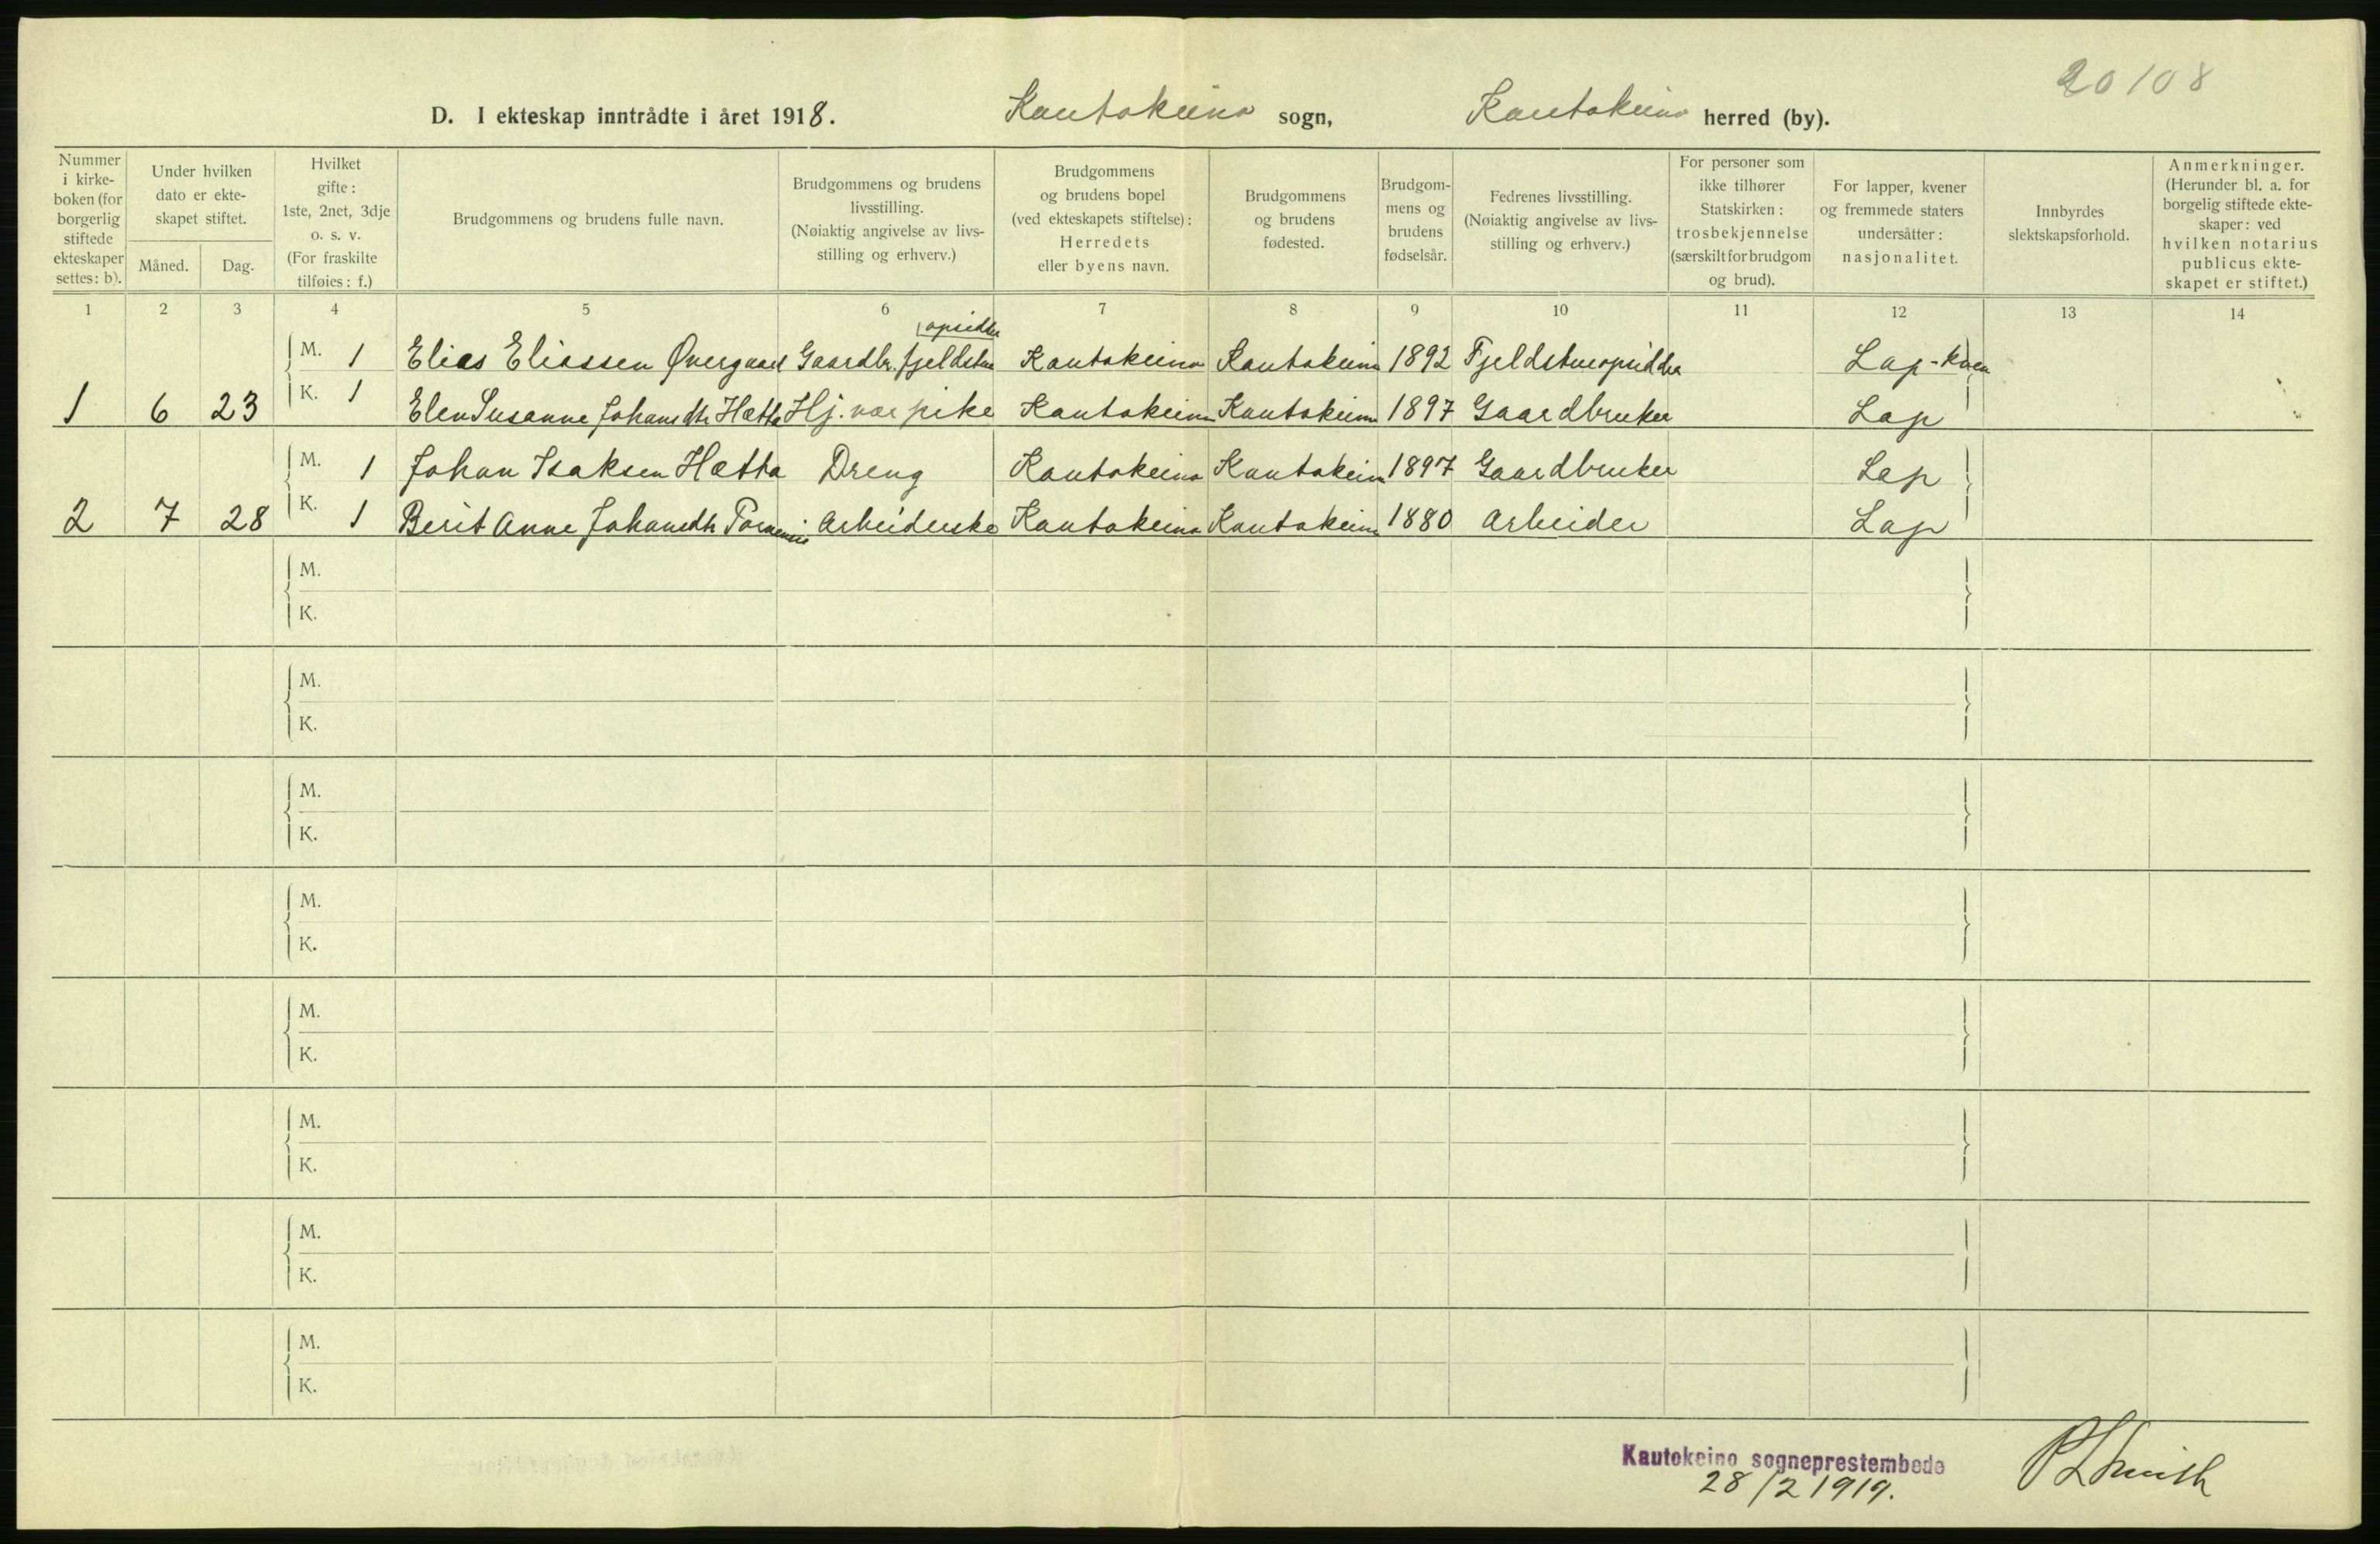 20108
D. I ekteskap inntrådte i året 1918. Kautokeino sogn, Kautokeino herred (by).
Nummer i kirke-boken (for borgerlig stiftede ekteskaper settes: b).
Under hvilken dato er ekte-skapet stiftet.
Måned. Dag.
Hvilket gifte: 1ste, 2net, 3dje o. s. v. (For fraskilte tilføies: f.)
Brudgommens og brudens fulle navn.
Brudgommens og brudens livsstilling. (Nøiaktig angivelse av livs-stilling og erhverv.)
Brudgommens og brudens bopel (ved ekteskapets stiftelse): Herredets eller byens navn.
Brudgommens og brudens fødested.
Brudgom-mens og brudens fødselsår.
Fedrenes livsstilling. (Nøiaktig angivelse av livs-stilling og erhverv.)
For personer som ikke tilhører Statskirken: trosbekjennelse (særskilt for brudgom og brud).
For lapper, kvener og fremmede staters undersåtter: nasjonalitet.
Innbyrdes slektskapsforhold.
Anmerkninger. (Herunder bl. a. for borgelig stiftede ekte-skaper: ved hvilken notarius publicus ekte-skapet er stiftet.)
1 2 3 4 5 6 7 8 9 10 11 12 13 14
opsidder
M. 1 Elias Eliassen Øvergaard Gaardbr. fjeldstue Kautokeino Kautokeino 1892 Fjeldstueopsidder Lap-kven
1 6 23 K. 1 Elen Susanne Johansdtr Hætta Hj. vær. pike Kautokeino Kautokeino 1897 Gaardbruker Lap
M. 1 Johan Isaksen Hætta Dreng Kautokeino Kautokeino 1897 Gaardbruker Lap
2 7 28 K. 1 Berit Anne Johansdtr Arbeiderske Kautokeino Kautokeino 1880 Arbeider Lap
M.
K.
M.
K.
M.
K.
M.
K.
M.
K.
M.
K.
M.
K.
M.
K.
Kautokeino sogneprestembede
28/2 1919.